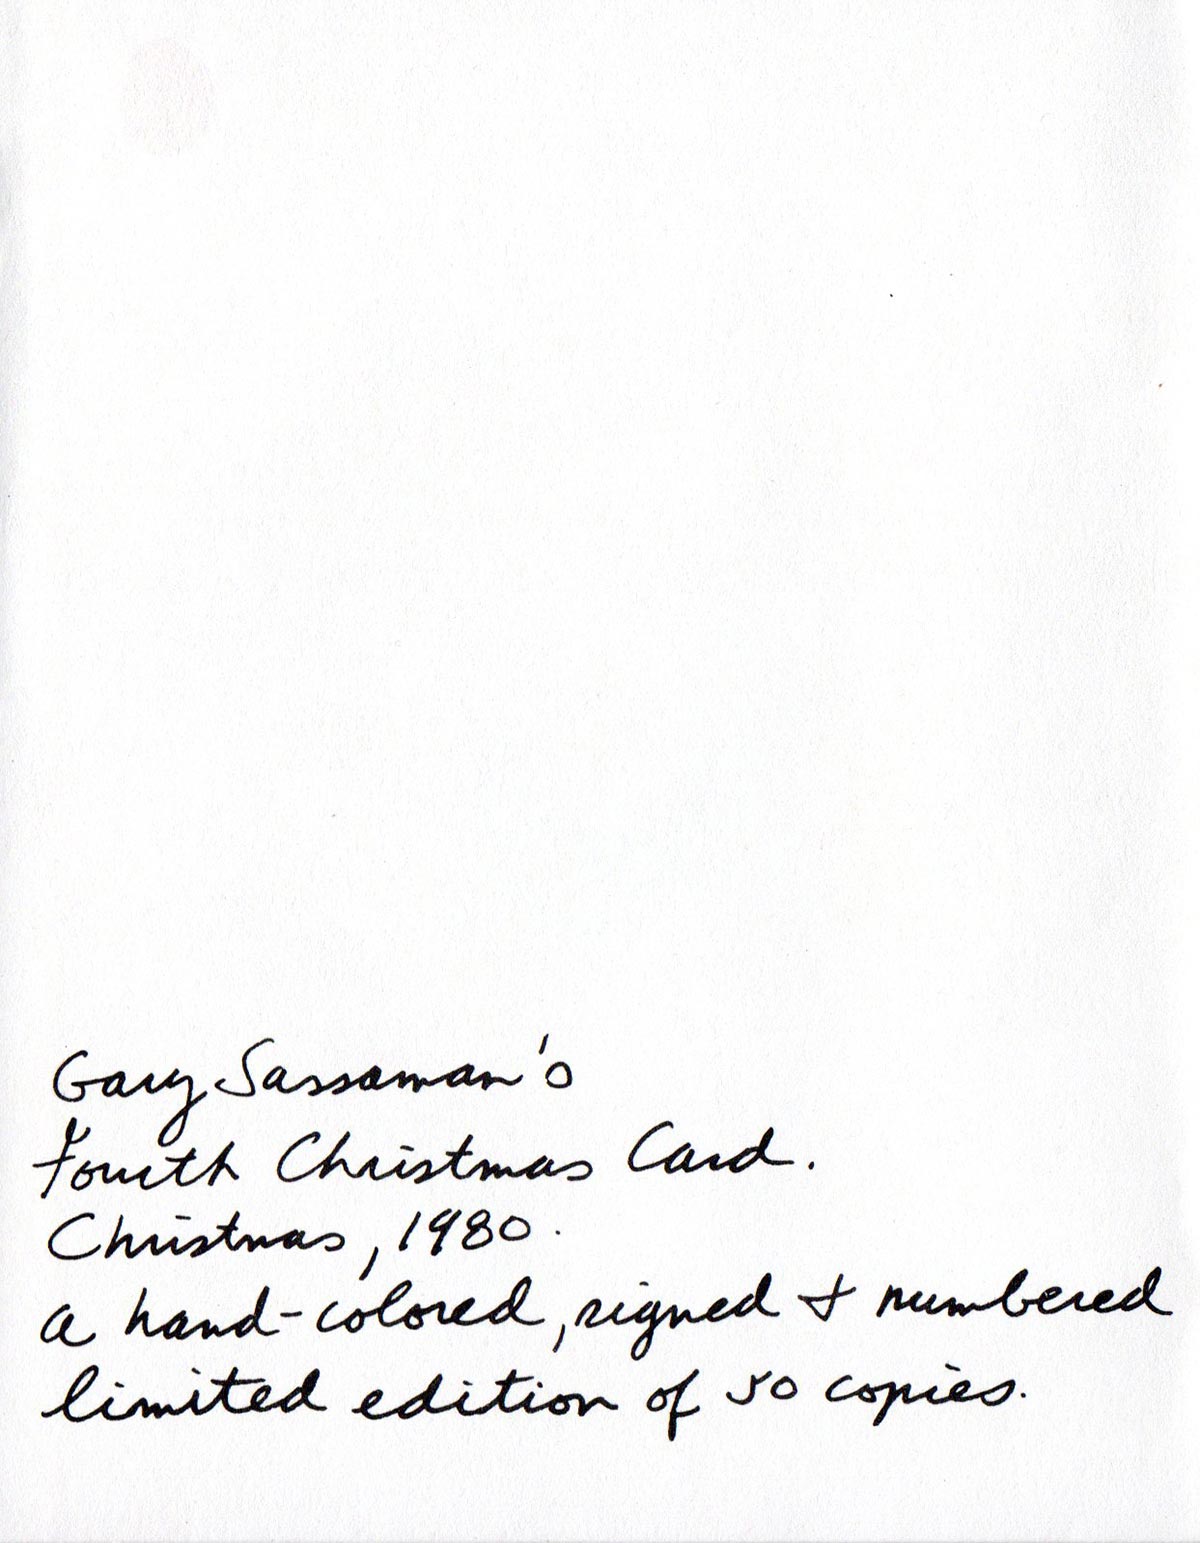 Gary Sassaman's
Fourth Christmas Card.
Christmas, 1980.
a hand-colored, signed & numbered
limited edition of 50 copies.